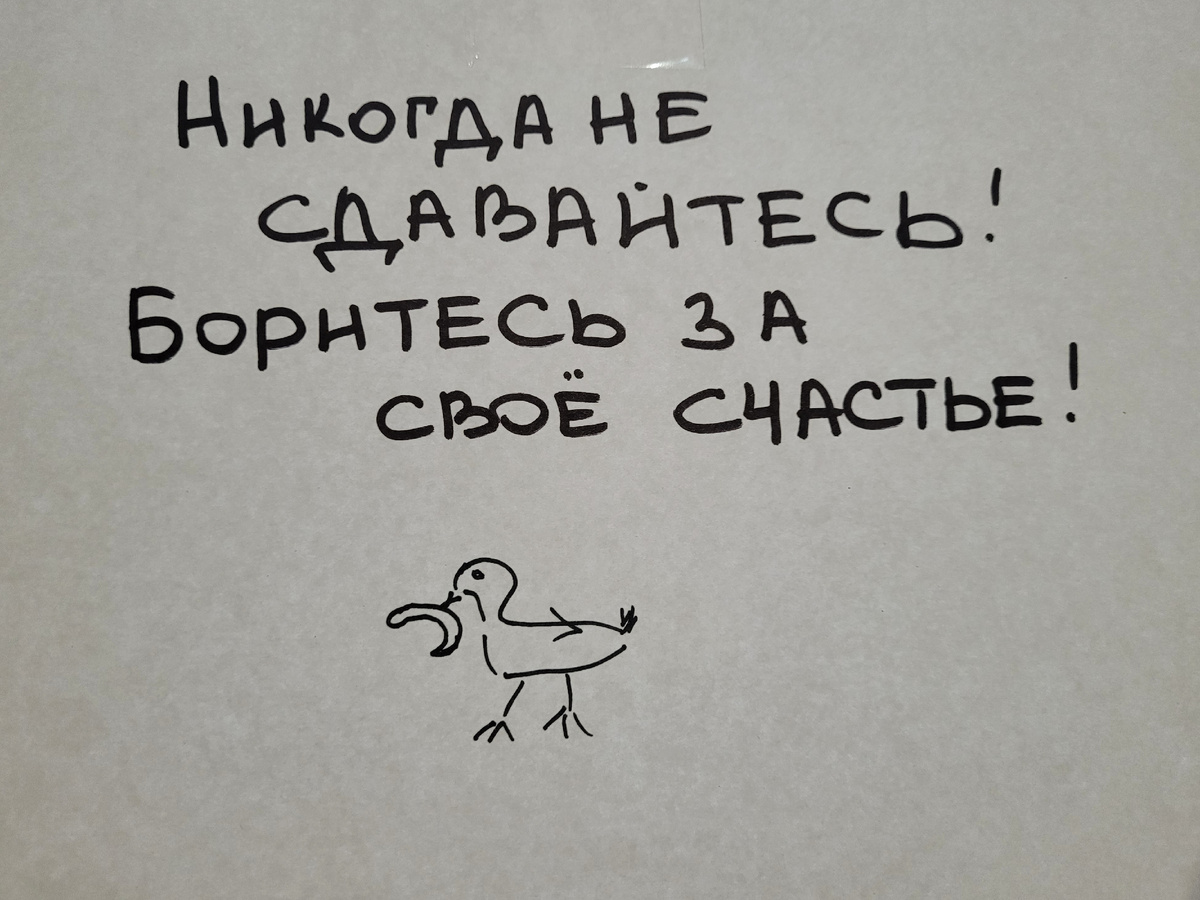 Никогда не
сдавайтесь!
Боритесь за
своё счастье!